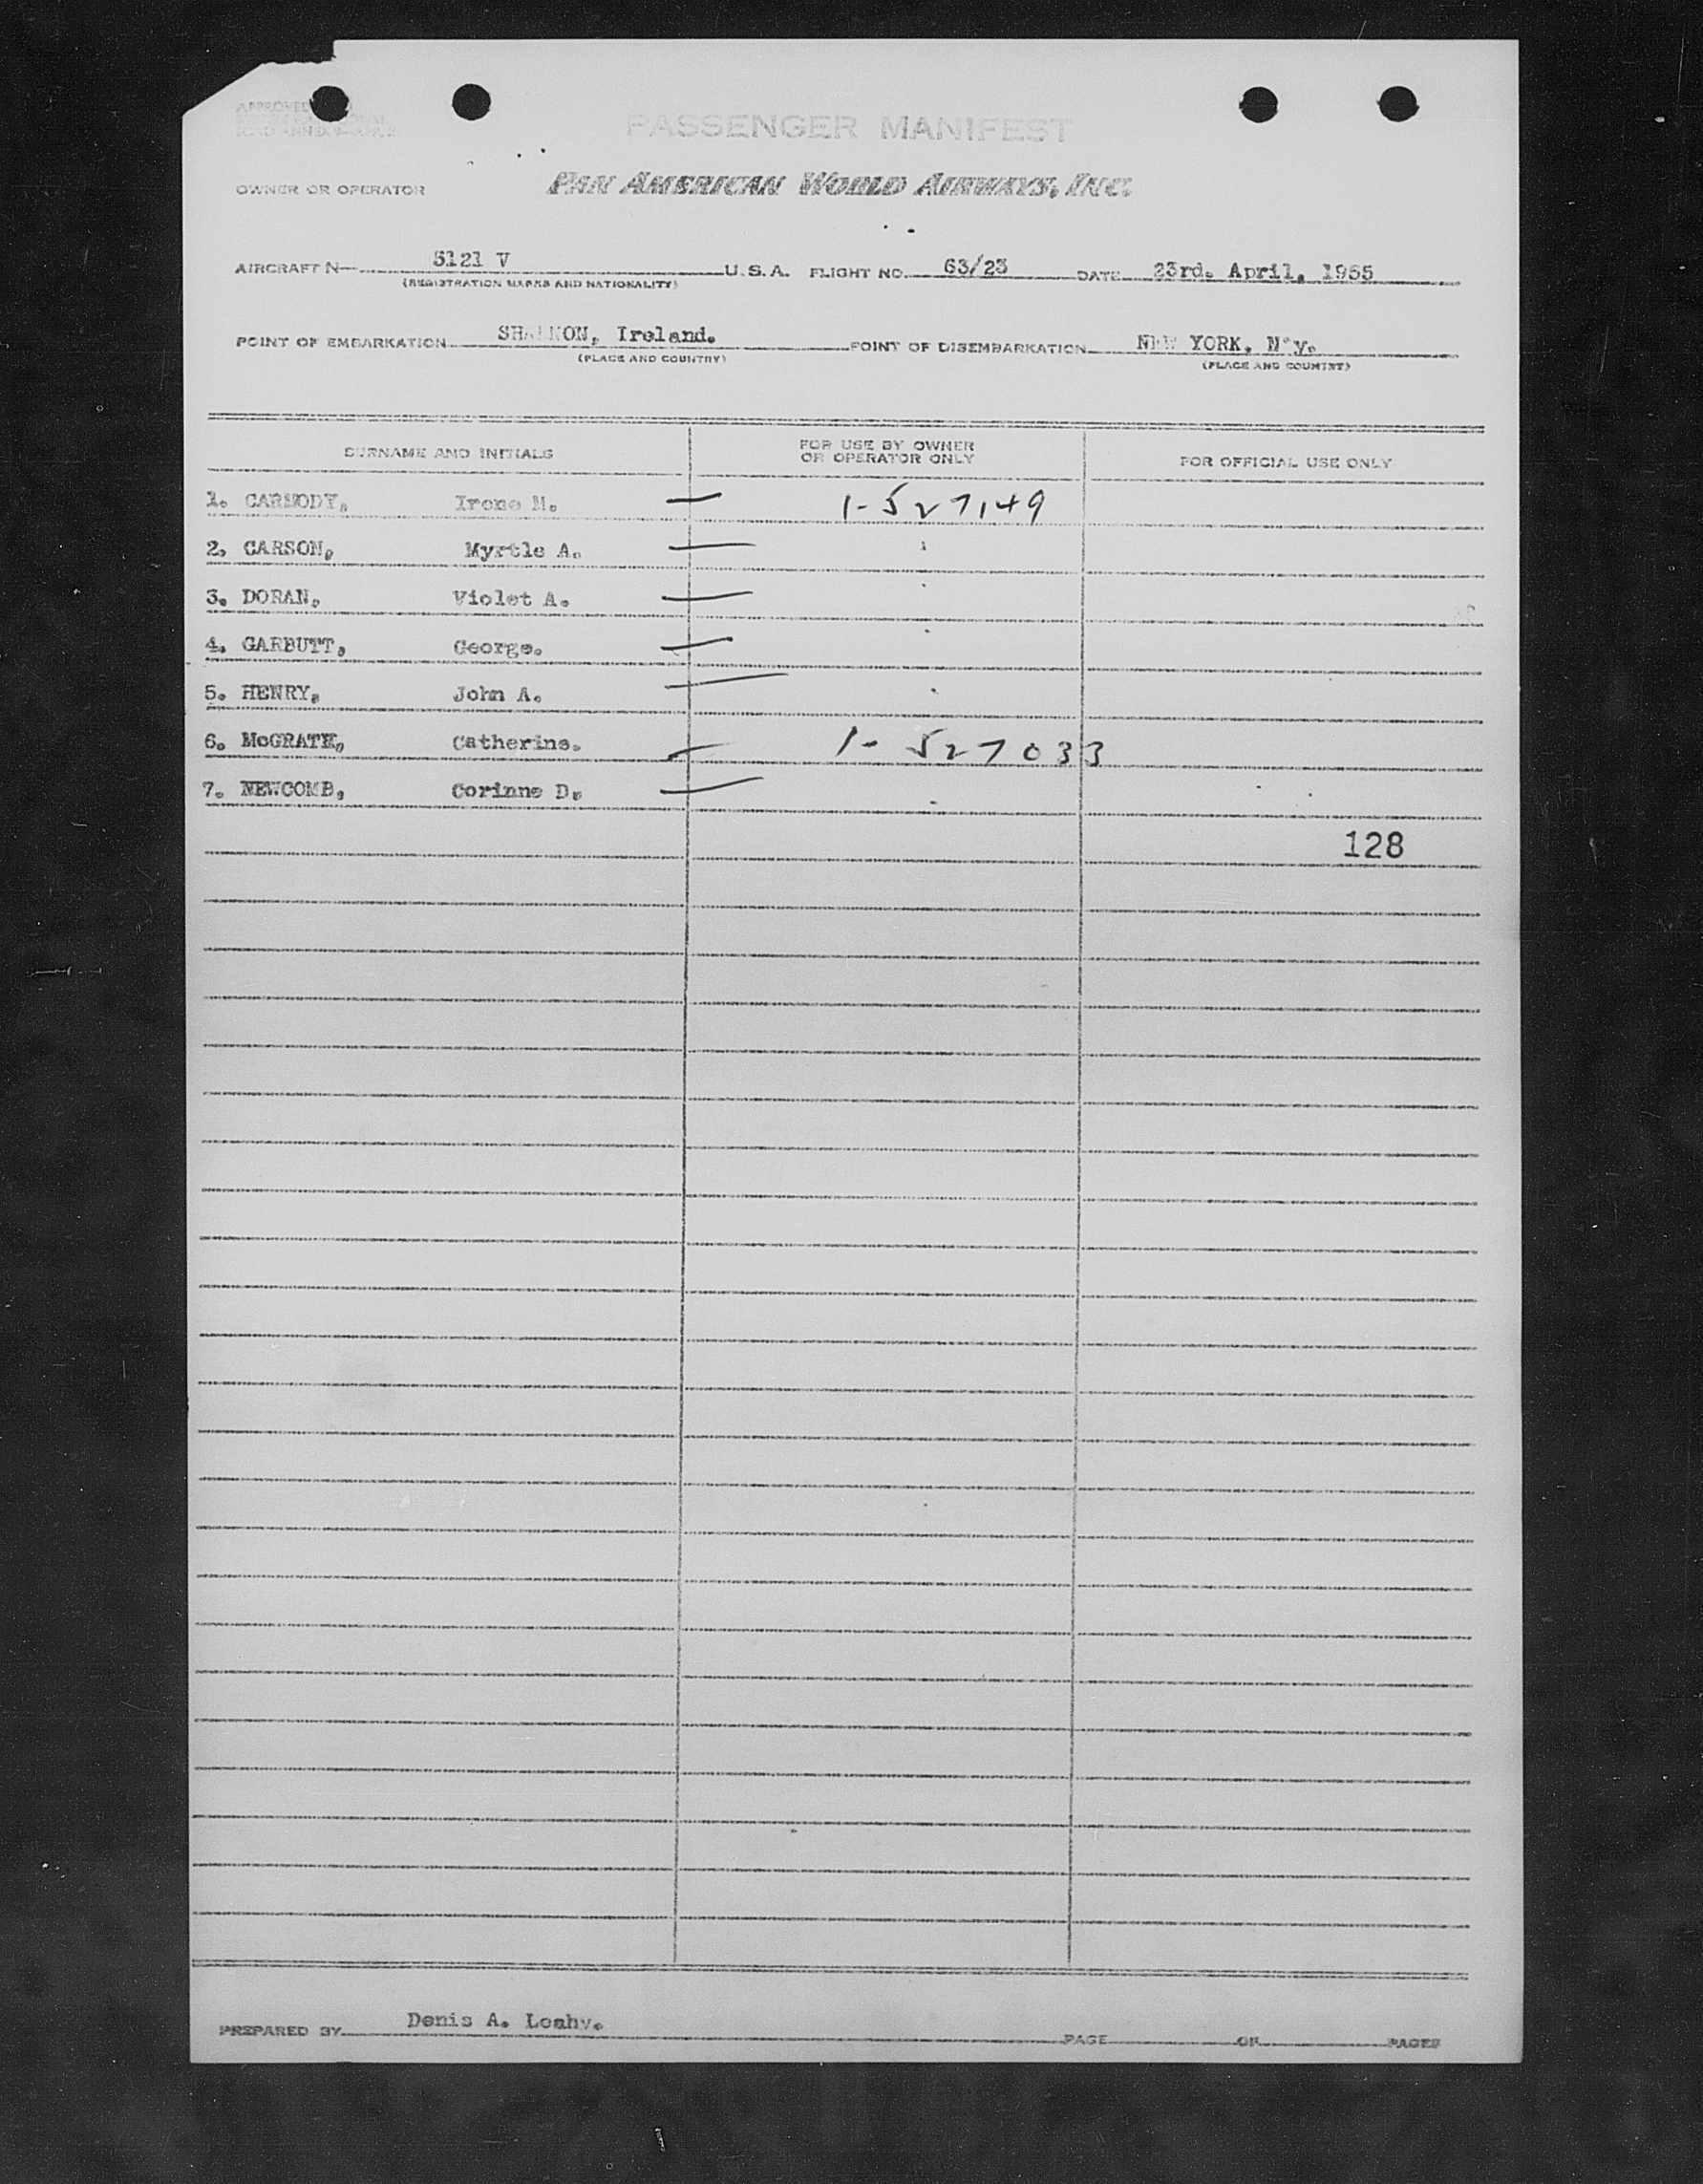 APPROVED
PASSENGER MANIFEST
OWNER OR OPERATOR PAN AMERICAN WORLD AIRWAYS, INC.
AIRCRAFT N— 5121 V U.S.A. FLIGHT NO. 63/23 DATE 23rd. April, 1955
(REGISTRATION MARKS AND NATIONALITY)
POINT OF EMBARKATION SHANNON, Ireland. POINT OF DISEMBARKATION NEW YORK, N.y.
(PLACE AND COUNTRY) (PLACE AND COUNTRY)
SURNAME AND INITIALS FOR USE BY OWNER OR OPERATOR ONLY FOR OFFICIAL USE ONLY
1. CARMODY, Irene M. — 1-527149
2. CARSON, Myrtle A. —
3. DORAN, Violet A. —
4. GARBUTT, George. —
5. HENRY, John A. —
6. McGRATH, Catherine. — 1-527033
7. NEWCOMB, Corinne D. —
128
PREPARED BY Denis A. Leahy. PAGE OF PAGES